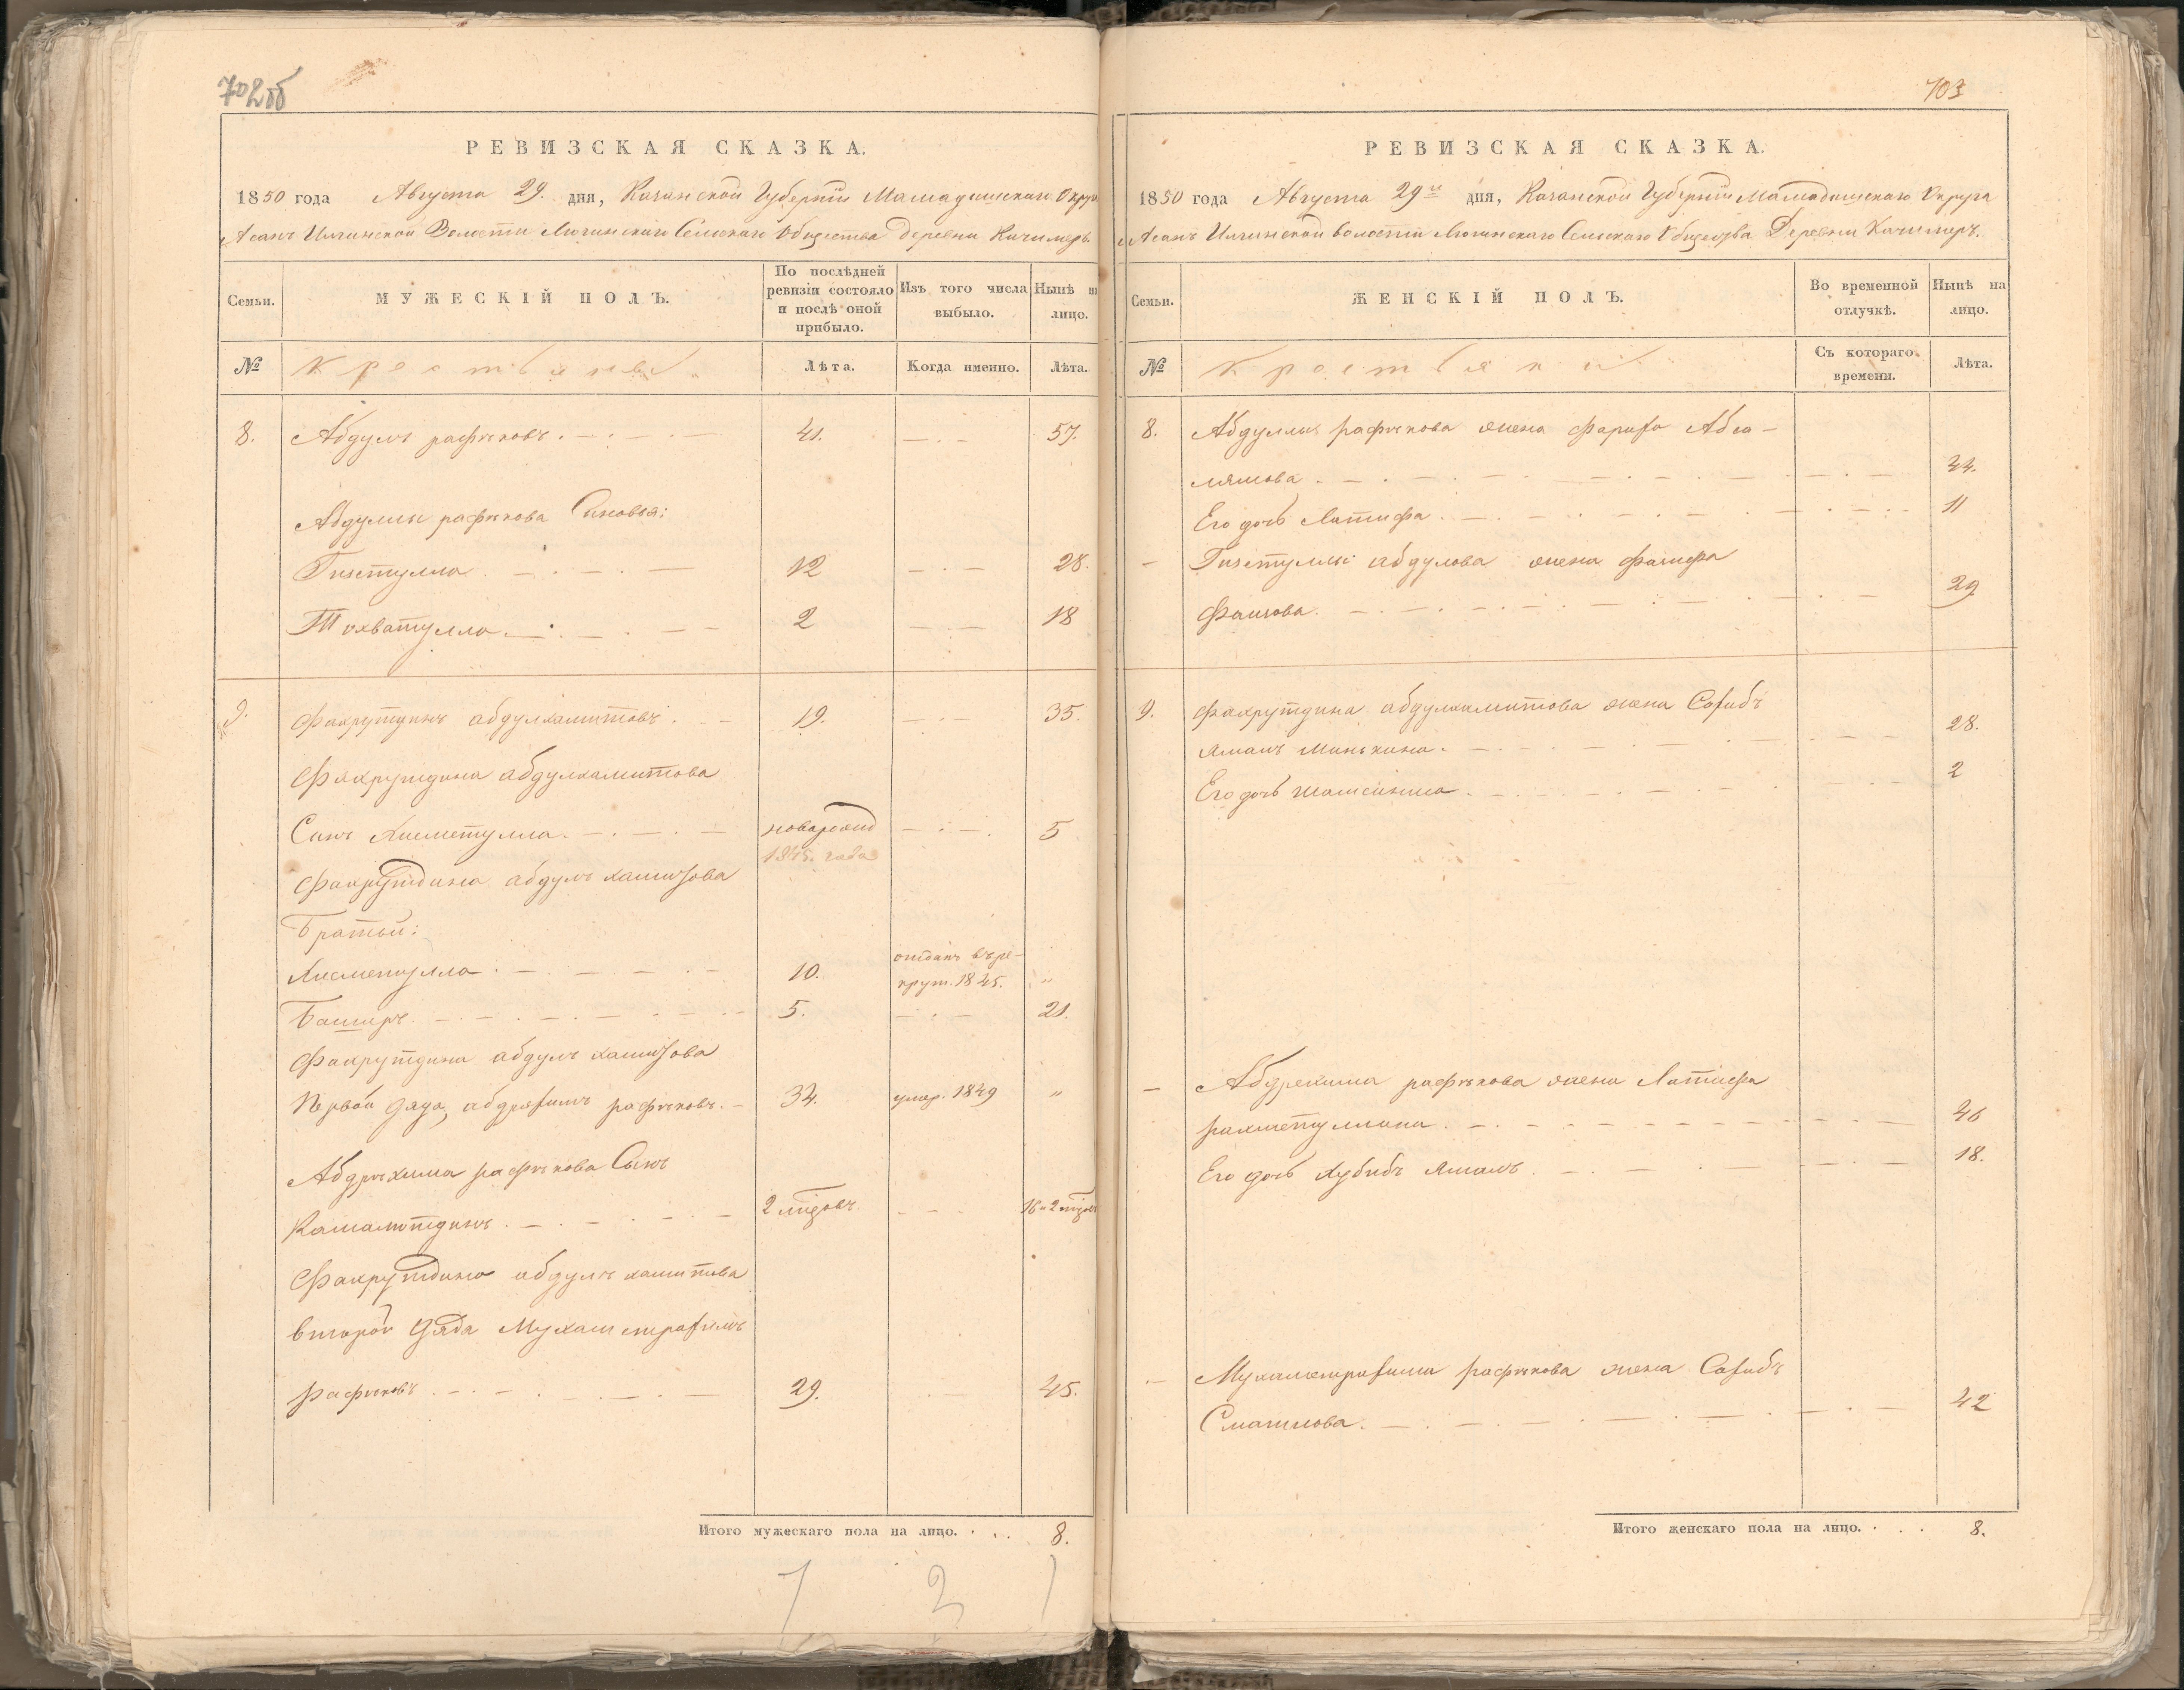 702об
РЕВИЗСКАЯ СКАЗКА.
1850 года Августа 29. дня, Казанской Губернiи Мамадышскаго Округа
Асанъ Илгинской Волости Сельскаго Общества деревни Качимеръ.
Семьи.
МУЖЕСКІЙ ПОЛЪ.
По послѣдней
ревизіи состояло
и послѣ оной
прибыло.
Изъ того числа
выбыло.
Нынѣ на
лицо.
№
Крестьяне
Лѣта.
Когда именно.
Лѣта.
8. Абдулъ рафиковъ. 41. 57.
Абдуллы рафикова Сыновья:
12 28.
Тохватулла 2 18
9. Фахрутдинъ абдулхамитовъ. 19. 35.
Фахрутдина абдулхамитова
Сынъ Хисметулла. новарожд 5
1845. года
Фахрутдина абдулъ хамитова
Братьи:
Хисметулла. 10. отданъ въ ре-
крут. 1845. "
Баширъ. 5. 21.
Фахрутдина абдулъ хамитова
Первой дядя, абдряхимъ рафиковъ. 34. умер. 1849 "
Абдряхима рафикова Сынъ
Камалитдинъ. 2 16 и 2
Фахрутдина абдулъ хамитова
второй Дядя Мухаметрахимъ
рафиковъ 29. 45.
Итого мужескаго пола на лицо. . . . 8.
7 2 1
703
РЕВИЗСКАЯ СКАЗКА.
1850 года Августа 29и дня, Казанской Губернiи Мамадышскаго Округа
Асанъ Илгинской волости Сельскаго Общества Деревни Качимеръ.
Семьи.
ЖЕНСКІЙ ПОЛЪ.
Во временной
отлучкѣ.
Нынѣ на
лицо.
№
Крестьянки
Съ котораго
времени.
Лѣта.
8. Абдуллы рафикова жена Абса-
лямова 44.
Его дочь Латифа. 11
абдулова жена
29
9. Фахрутдина абдулхамитова жена Сахибъ
ямалъ Минькина. 28.
Его дочь 2
Абдрехима рафикова жена Латифа
рахметуллина. 46
Его дочь Хубибъ ямалъ. 18.
Мухаметрахима рафикова жена Сахибъ
Смаилова. 42
Итого женскаго пола на лицо. . . . 8.